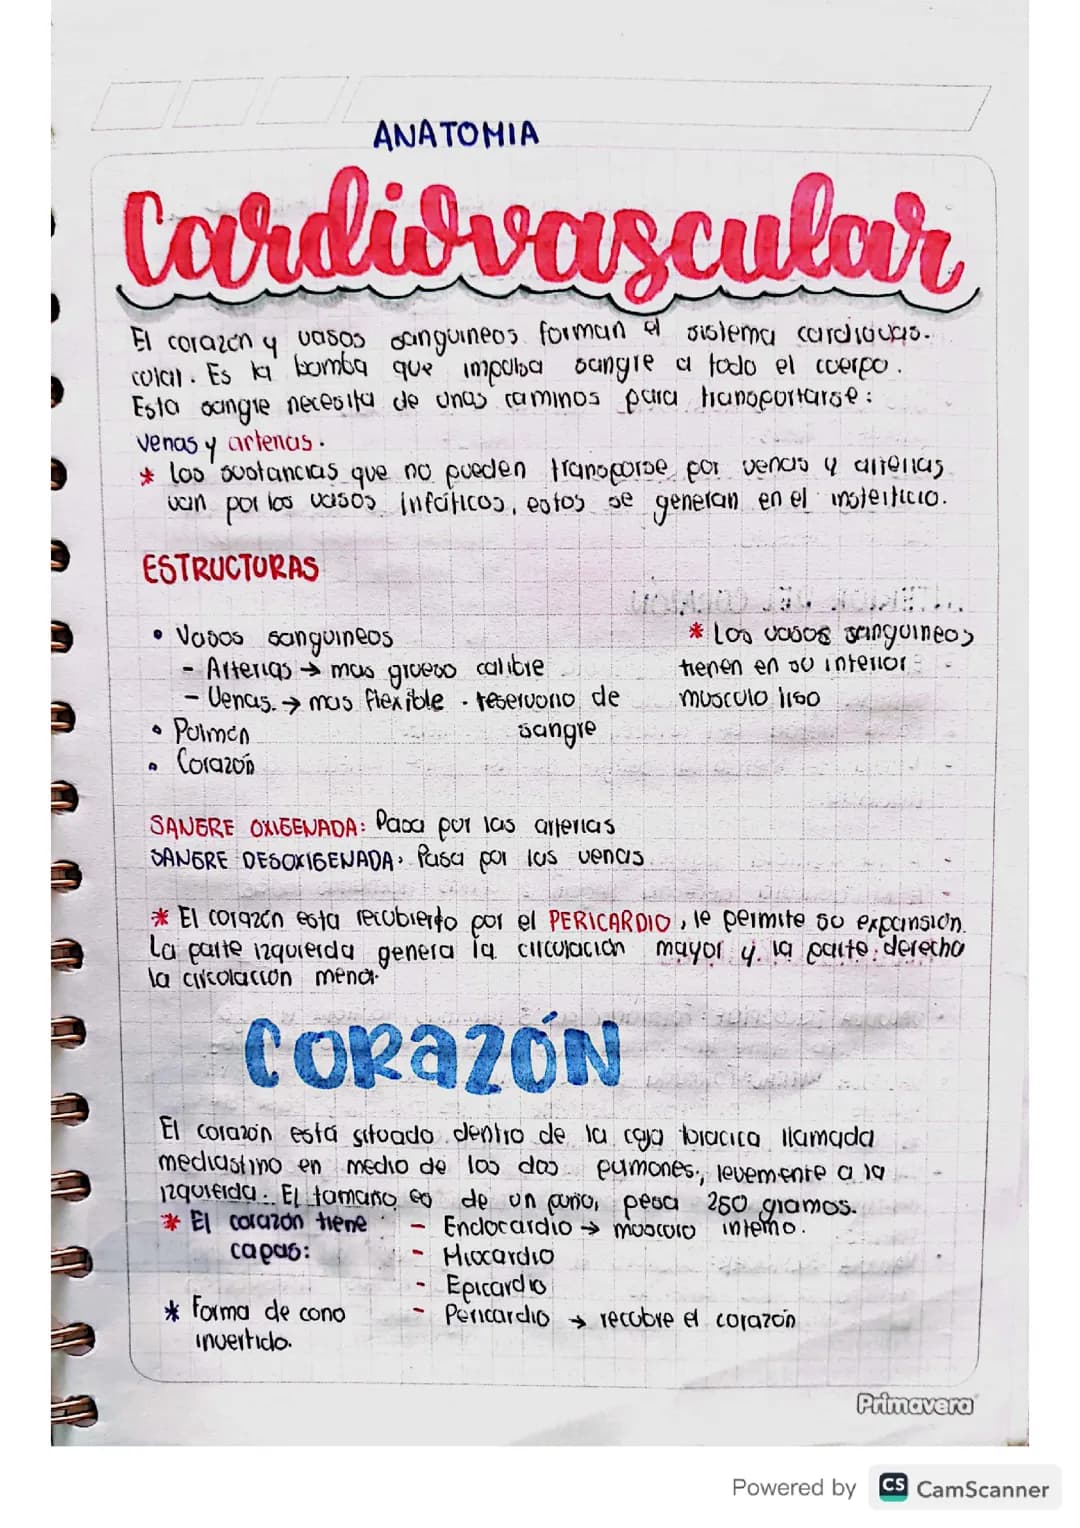 ANATOMIA
Cardiovascular
El corazón y vasos sanguineos forman el sistema cardiovas-
cular. Es la bomba que impulsa sangre a todo el cuerpo.
Esta sangre necesita de unas caminos para transportarse:
venas y arterias.
* Las sustancias que no pueden transporse por venas y arterias
van por los vasos infáticos, estos se generan en el insterticio.
ESTRUCTURAS
• Vasos sanguineos
- Arterias → mas grueso calibre
- Venas. → mas flexible - reservorio de
sangre
• Pulmón
• Corazón
* Los vasos sanguineos
tienen en su interior
musculo liso
SANGRE OXIGENADA: Pasa por las arterias
SANGRE DESOXIGENADA: Pasa por las venas
* El corazón esta recubierto por el PERICARDIO, le permite su expansión.
La parte izquierda genera la circulación mayor y la parte derecha
la circulación menor.
CORAZÓN
El corazón está situado dentro de la caja toracica llamada
mediastino en medio de los dos pumones, levemente a la
izquierda. El tamaño es de un puño, pesa 250 gramos.
* El corazón tiene
capas:
- Endocardio → musculo interno.
- Miocardio
- Epicardio
- Pericardio → recubre el corazón
* Forma de cono
invertido.
Primavera
Powered by CS CamScanner